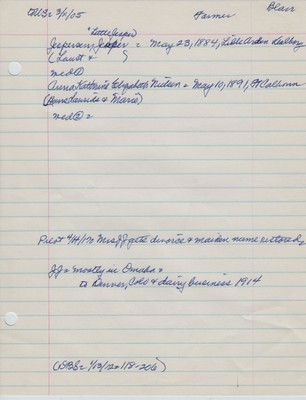 3/2/05 Farmer Blair
"Little Jesper"
Jespersen, Jesper = May 23, 1884, Lille Arden Aalborg
(Laust &        )
med@
Anna Kathrine Elizabeth Nielsen = May 10, 1891, Ft Calhoun
(Anne Laurids & Marie)
med@ =
Pilot 4/4/17 Mrs JJ gets divorce & maiden name restored
JJ = mostly in Omaha &
Denver, Colo & dairy business 1914
1/13/12